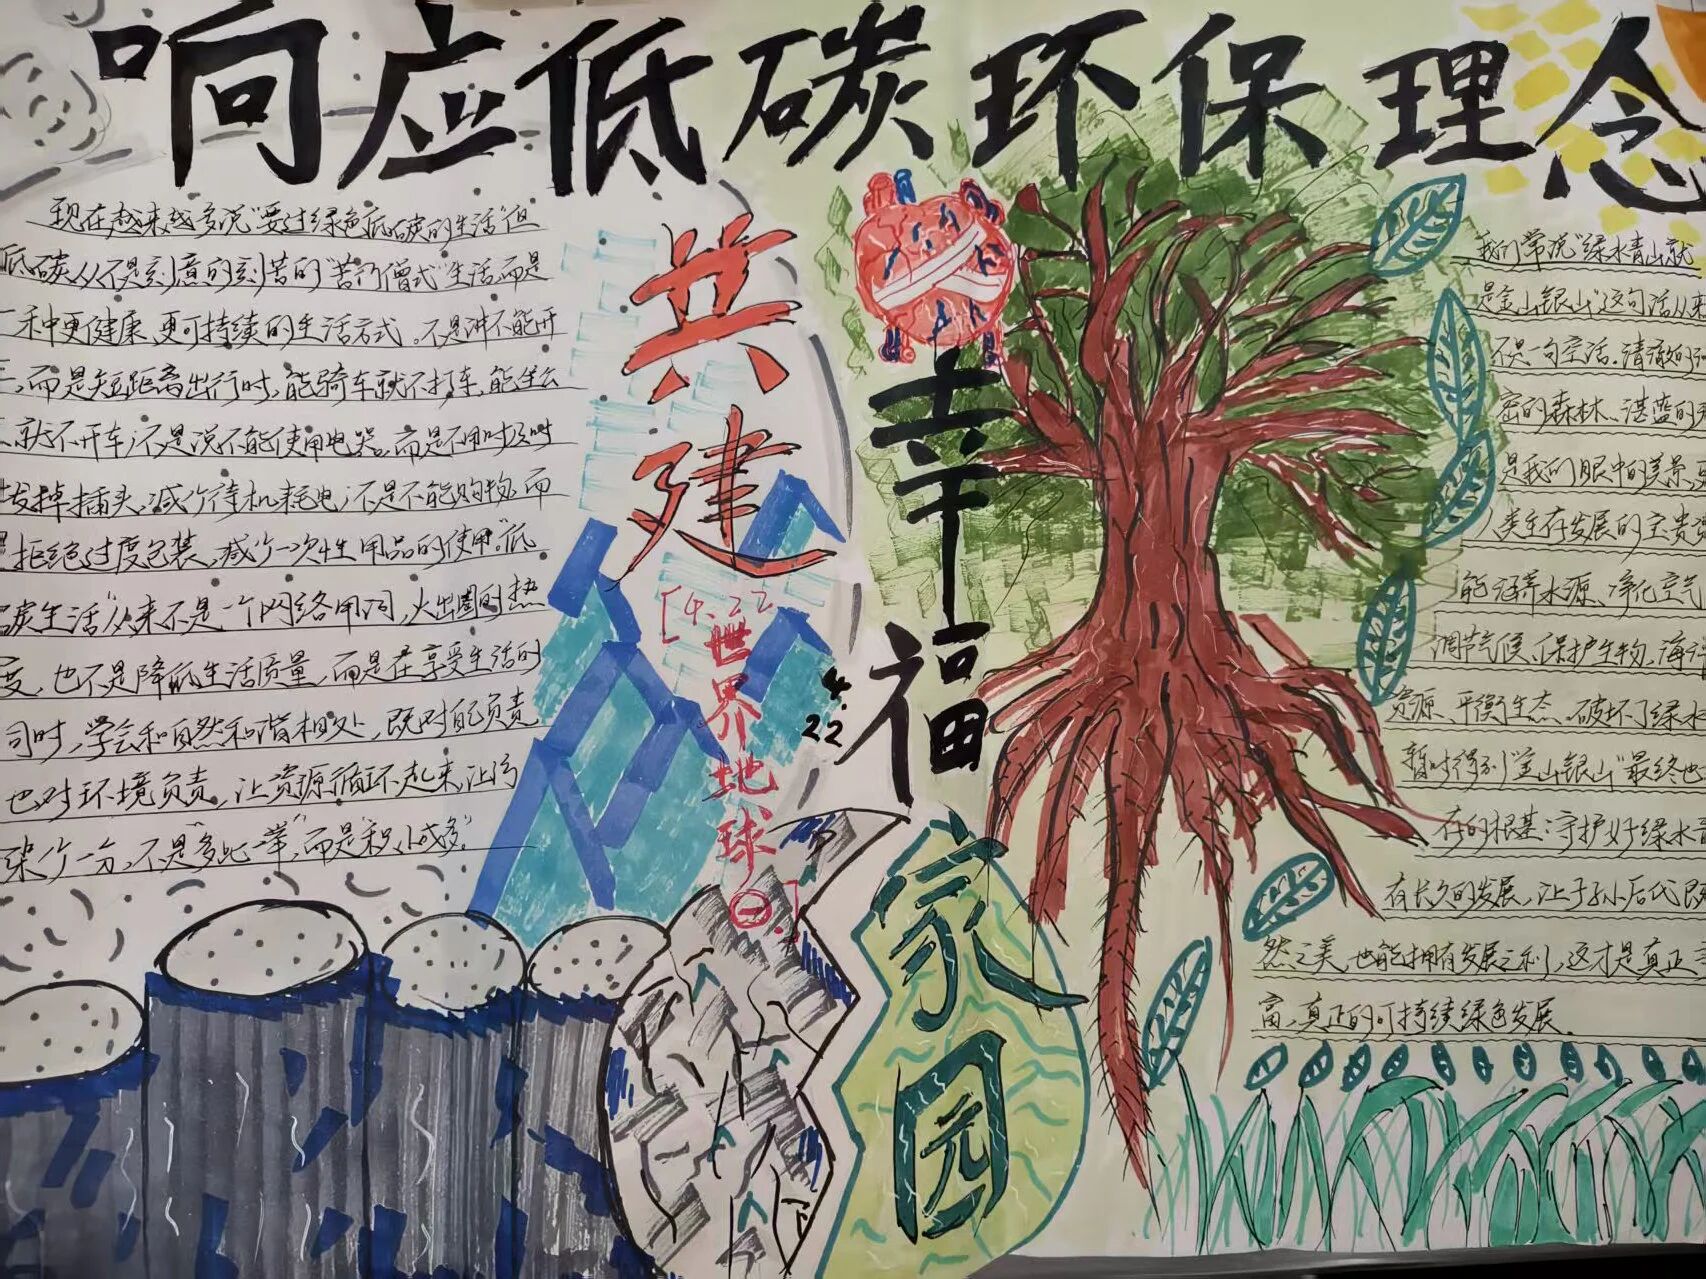 响应低碳环保理念
现在越来越多说"要过绿色低碳的生活"但
低碳从不是刻意的刻苦的"苦行僧式"生活,而是
一种更健康、更可持续的生活方式。不是讲不能开
,而是短距离出行时,能骑车就不打车,能坐公
就不开车;不是说不能使用电器,而是不用时及时
拔掉插头,减少待机耗电;不是不能购物,而
拒绝过度包装,减少一次性用品的使用。"低
碳生活"从来不是一个网络用词,火出圈的热
度,也不是降低生活质量,而是在享受生活的
同时,学会和自然和谐相处,既对自己负责
也对环境负责,让资源循环起来,让污
染少一分,不是"多此一举",而是"积小成多"。
共建
[4.22
世界地球日]
4.
22
幸福
家园
我们常说"绿水青山就
是金山银山"这句话从来
不是一句空话。清澈的
密的森林、湛蓝的
是我们眼中的美景,
人类生存发展的宝贵
能涵养水源、净化空气
调节气候、保护生物,海
资源、平衡生态。破坏了绿水
暂时得到"金山银山"最终也
存的根基;守护好绿水
有长久的发展,让子孙后代既
然之美,也能拥有发展之利,这才是真正
富,真正的可持续绿色发展。